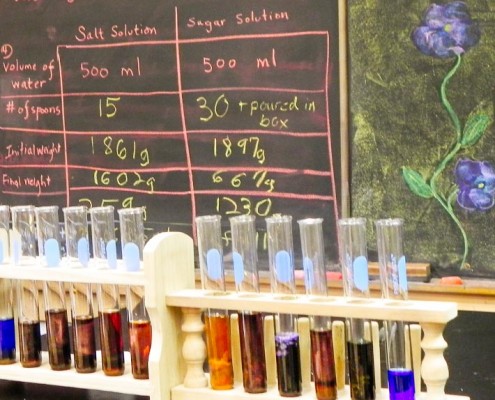 Salt Solution Sugar Solution
Volume of water 500 ml 500 ml
# of spoons 15 30 + poured in box
Initial weight 1861g 1897g
Final weight 1602g 667g
259g 1230